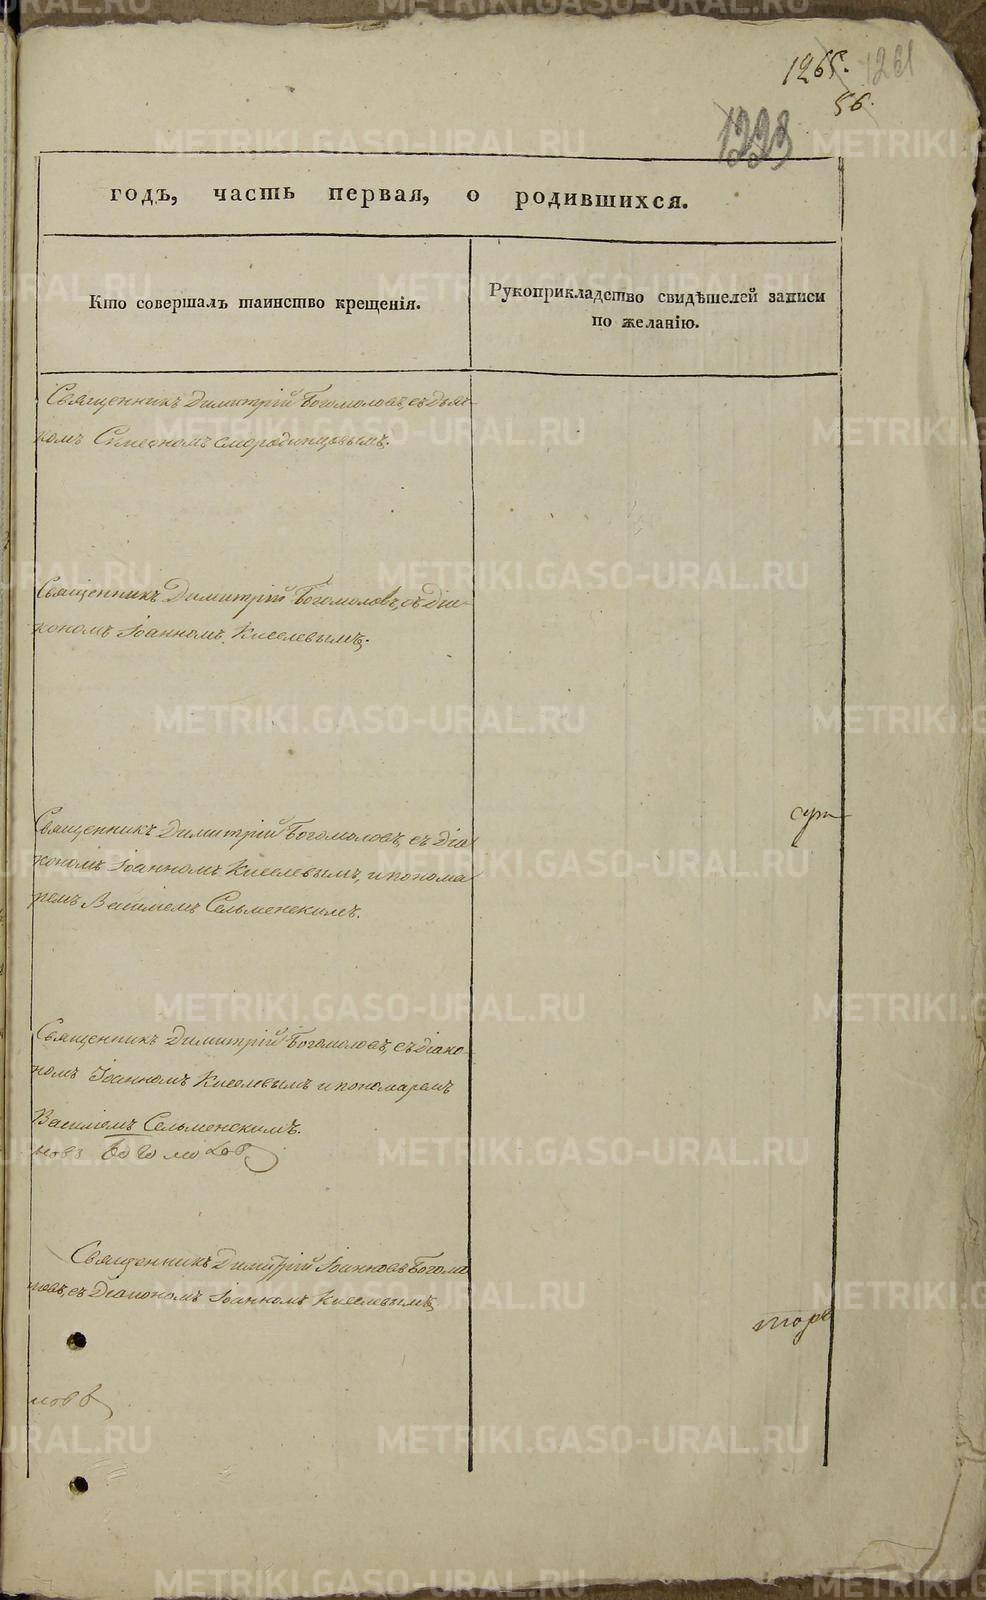 1265. 1261
56.
1223
годъ, часть первая, о родившихся.
Кто совершалъ таинство крещенія.
Рукоприкладство свидѣтелей записи
по желанію.
Священникъ Димитрій Богомоловъ, съ дья-
комъ Симеономъ Смородинцовымъ.
Священникъ Димитрій Богомоловъ, съ діа-
кономъ Іоанномъ Киселевымъ.
Священникъ Димитрій Богомоловъ, съ діа
кономъ Іоанномъ Киселевымъ, и понома
ремъ Василіемъ Сельменскимъ.
Священникъ Димитрій Богомоловъ, съ діако
номъ Іоанномъ Киселевымъ и пономаремъ
Василіемъ Сельменскимъ.
новъ Богомолов
Священникъ Димитрій Іоанновъ Богомо
ловъ, съ Діакономъ Іоанномъ Киселевымъ
ловъ
METRIKI.GASO-URAL.RU